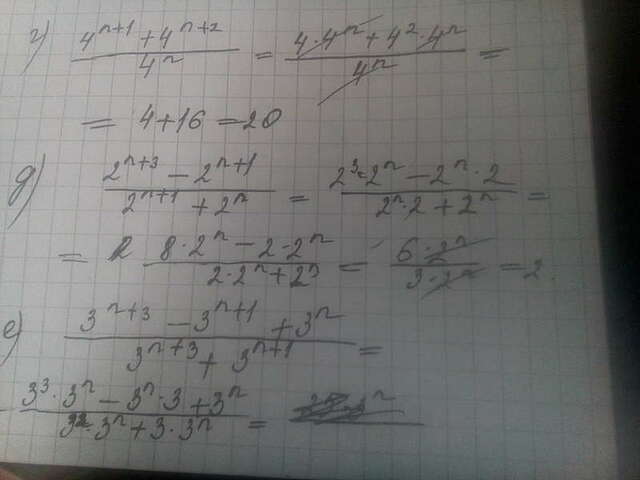 г) (4^(n+1) + 4^(n+2)) / 4^n = (4·4^n + 4^2·4^n) / 4^n =
= 4+16 = 20
д) (2^(n+3) − 2^(n+1)) / (2^(n+1) + 2^n) = (2^3·2^n − 2^n·2) / (2^n·2 + 2^n) =
= (8·2^n − 2·2^n) / (2·2^n + 2^n) = (6·2^n) / (3·2^n) = 2.
е) (3^(n+3) − 3^(n+1) + 3^n) / (3^(n+3) + 3^(n+1)) =
(3^3·3^n − 3^n·3 + 3^n) / (3^3·3^n + 3·3^n) =